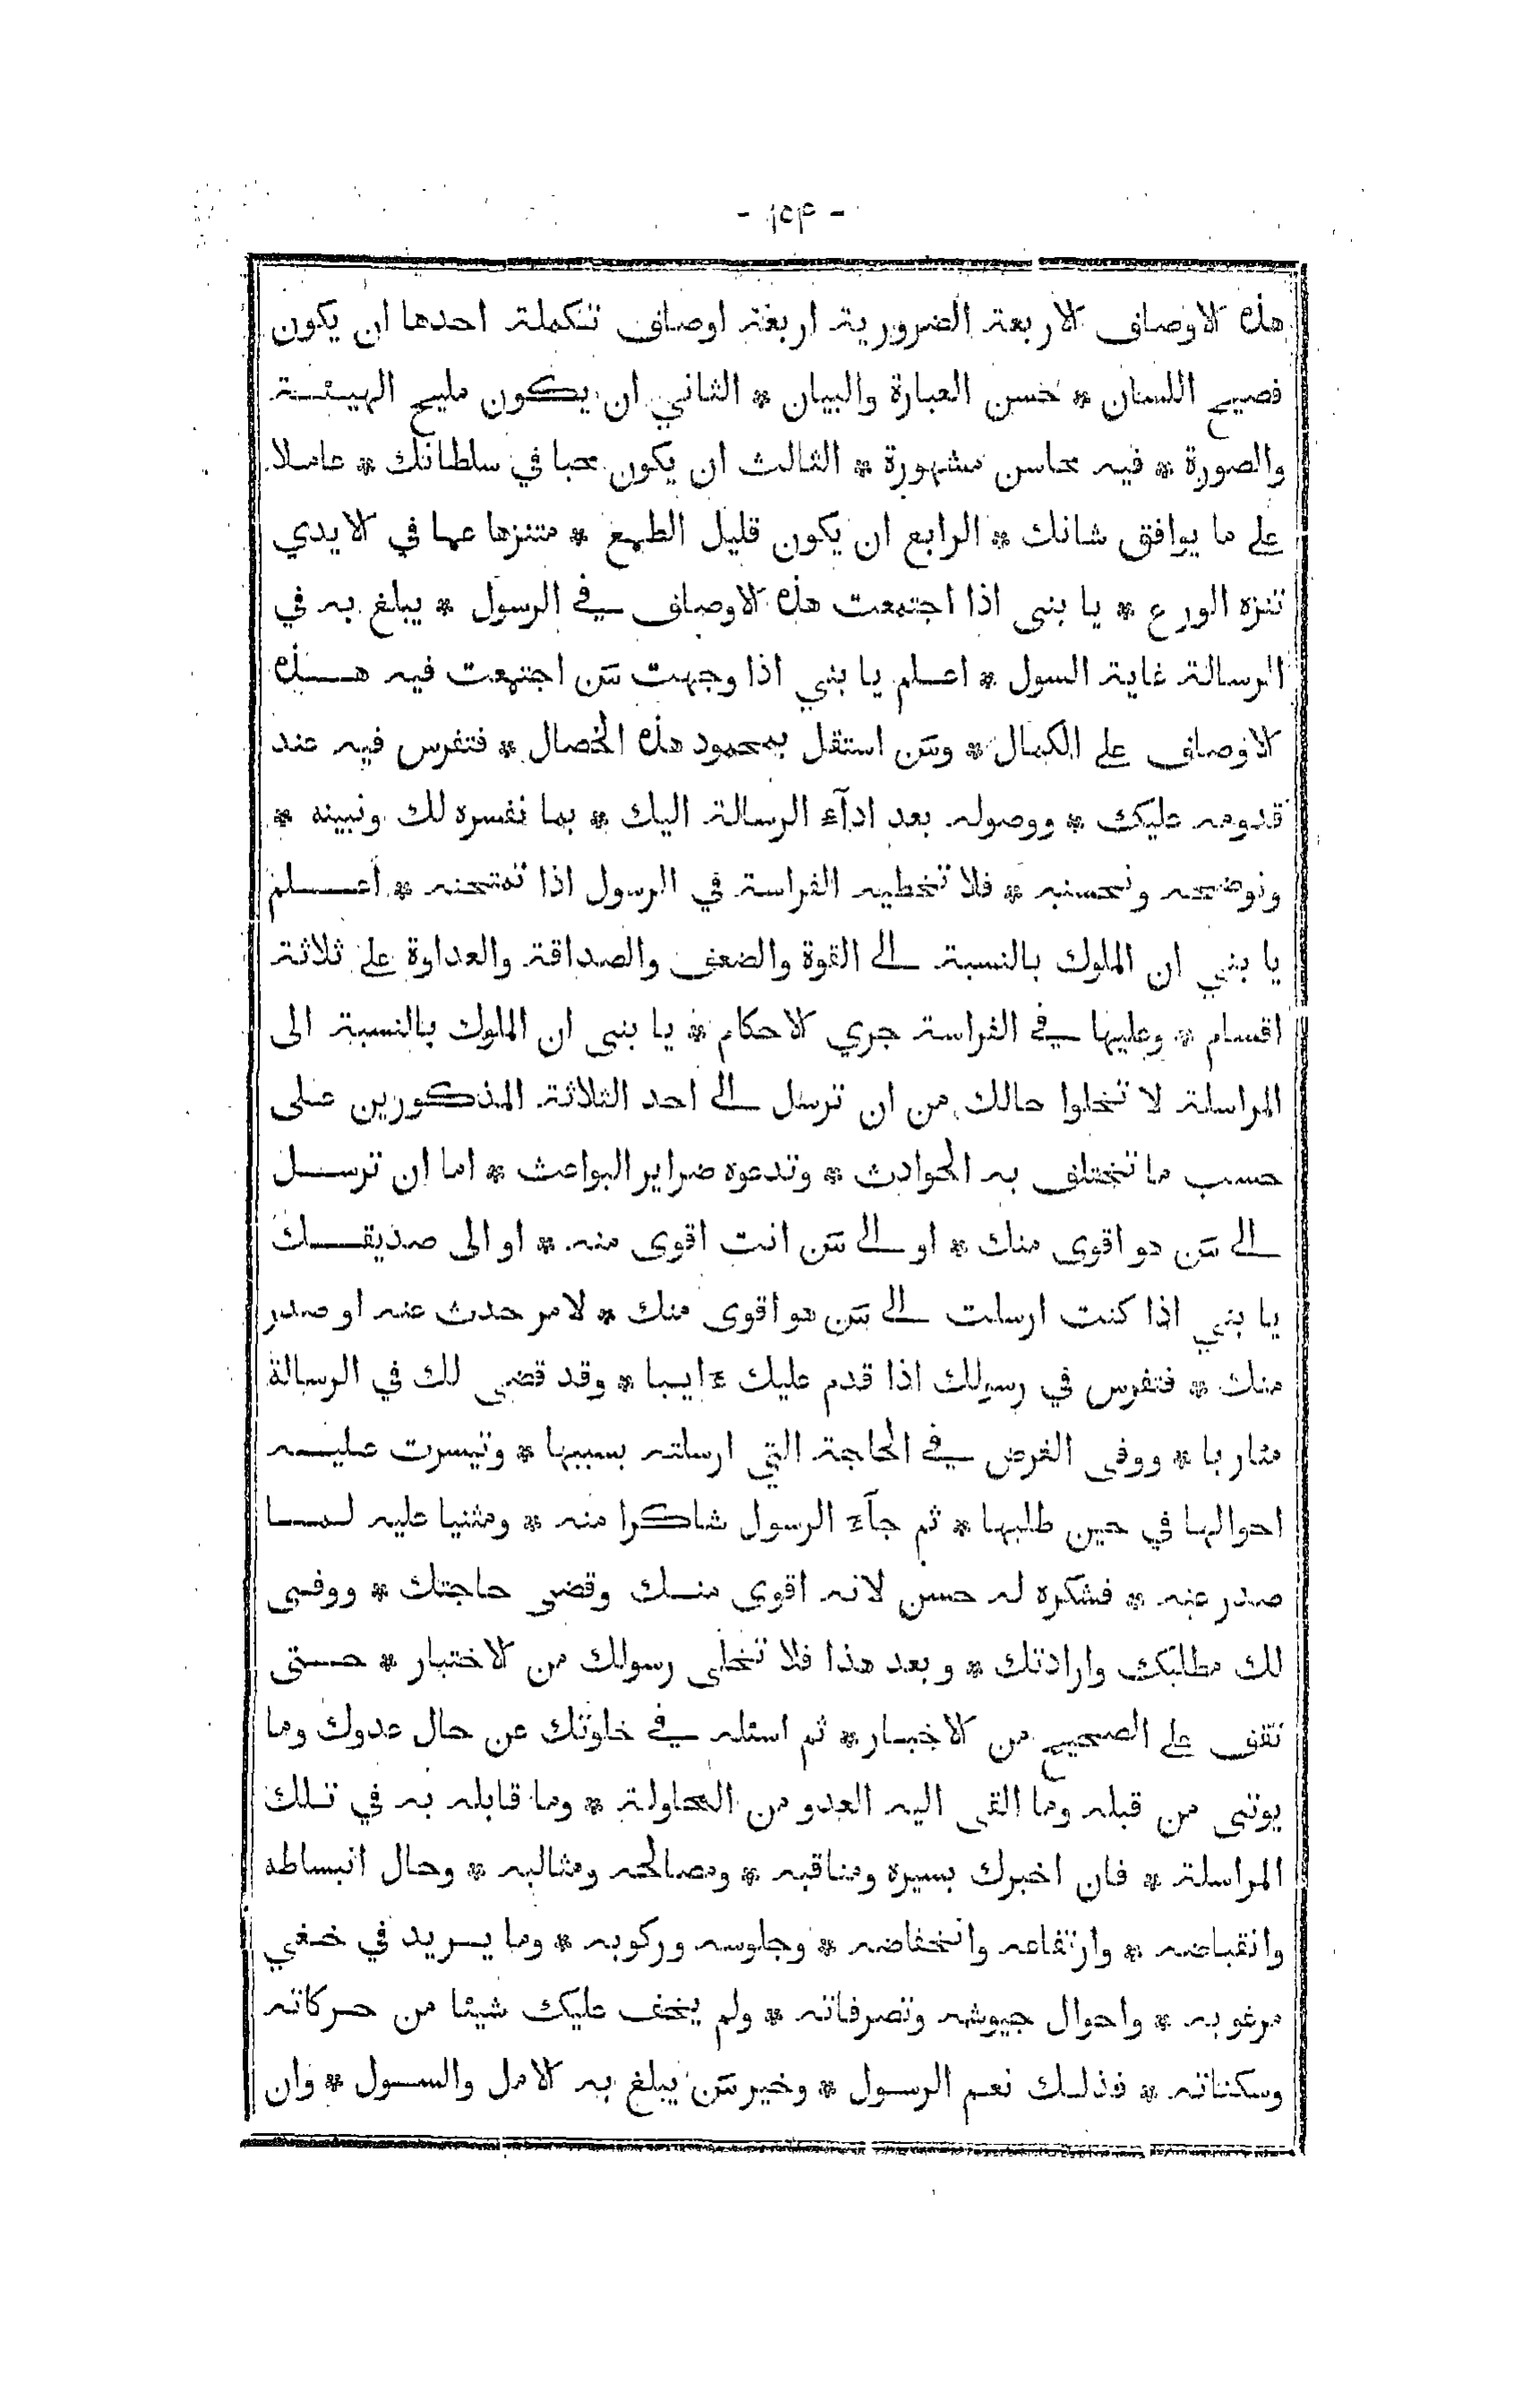 - ١٥٤ -
هذه الاوصاف الاربعة الضرورية اربعة اوصاف تكملة احدها ان يكون
فصيح اللسان * حسن العبارة والبيان * الثاني ان يكون مليح الهيئة
والصورة * فيه محاسن مشهورة * الثالث ان يكون محبا في سلطانك * عاملا
على ما يوافق شانك * الرابع ان يكون قليل الطمع * متنزها عما في الايدي
تنزه الورع * يا بني اذا اجتمعت هذه الاوصاف في الرسول * يبلغ به في
الرسالة غاية السول * اعلم يا بني اذا وجهت من اجتمعت فيه هذه
الاوصاف على الكمال * ومن استقل بمحمود هذه الخصال * فتفرس فيه عند
قدومه عليك * ووصوله بعد ادآء الرسالة اليك * بما نفسره لك ونبينه *
ونوضحه ونحسنه * فلا تخطيه الفراسة في الرسول اذا تمتحنه * اعلم
يا بني ان الملوك بالنسبة الى القوة والضعف والصداقة والعداوة على ثلاثة
اقسام * وعليها في الفراسة جري الاحكام * يا بني ان الملوك بالنسبة الى
المراسلة لا تخلوا حالك من ان ترسل الى احد الثلاثة المذكورين على
حسب ما تختلف به الحوادث * وتدعوه ضراير البواعث * اما ان ترسل
الى من هو اقوى منك * او الى من انت اقوى منه * او الى صديقك
يا بني اذا كنت ارسلت الى من هو اقوى منك * لامر حدث عنه او صدر
منك * فتفرس في رسولك اذا قدم عليك ءايبا * وقد قضى لك في الرسالة
مئاربا * ووفى الغرض في الحاجة التي ارسلته بسببها * وتيسرت عليه
احوالها في حين طلبها * ثم جآء الرسول شاكرا منه * ومثنيا عليه لما
صدر عنه * فشكره له حسن لانه اقوى منك وقضى حاجتك * ووفى
لك مطلبك وارادتك * وبعد هذا فلا تخلى رسولك من الاختبار * حتى
تقف على الصحيح من الاخبار * ثم اسئله في خلوتك عن حال عدوك وما
يوتى من قبله وما القى اليه العدو من المحاولة * وما قابله به في تلك
المراسلة * فان اخبرك بسيره ومناقبه * ومصالحه ومثالبه * وحال انبساطه
وانقباضه * وارتفاعه وانخفاضه * وجلوسه وركوبه * وما يريد في خفي
مرغوبه * واحوال جيوشه وتصرفاته * ولم يخف عليك شيئا من حركاته
وسكناته * فذلك نعم الرسول * وخير من يبلغ به الامل والسول * وان